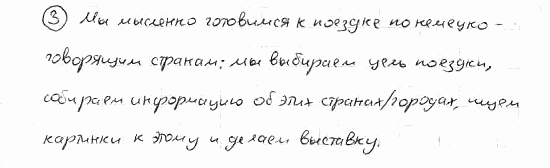 ③ Мы мысленно готовимся к поездке по немецко-
говорящим странам: мы выбираем цель поездки,
собираем информацию об этих странах/городах, ищем
картинки к этому и делаем выставку.